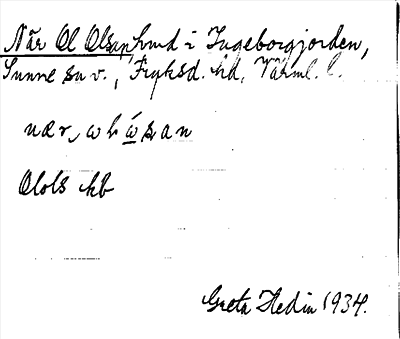 När Ol Olsan, hmd i Ingeborgjorden,
Sunne sn v., Fryksd. hd, Värml. l.
nær, ωlώsan
Olols hb
Greta Hedin 1934.